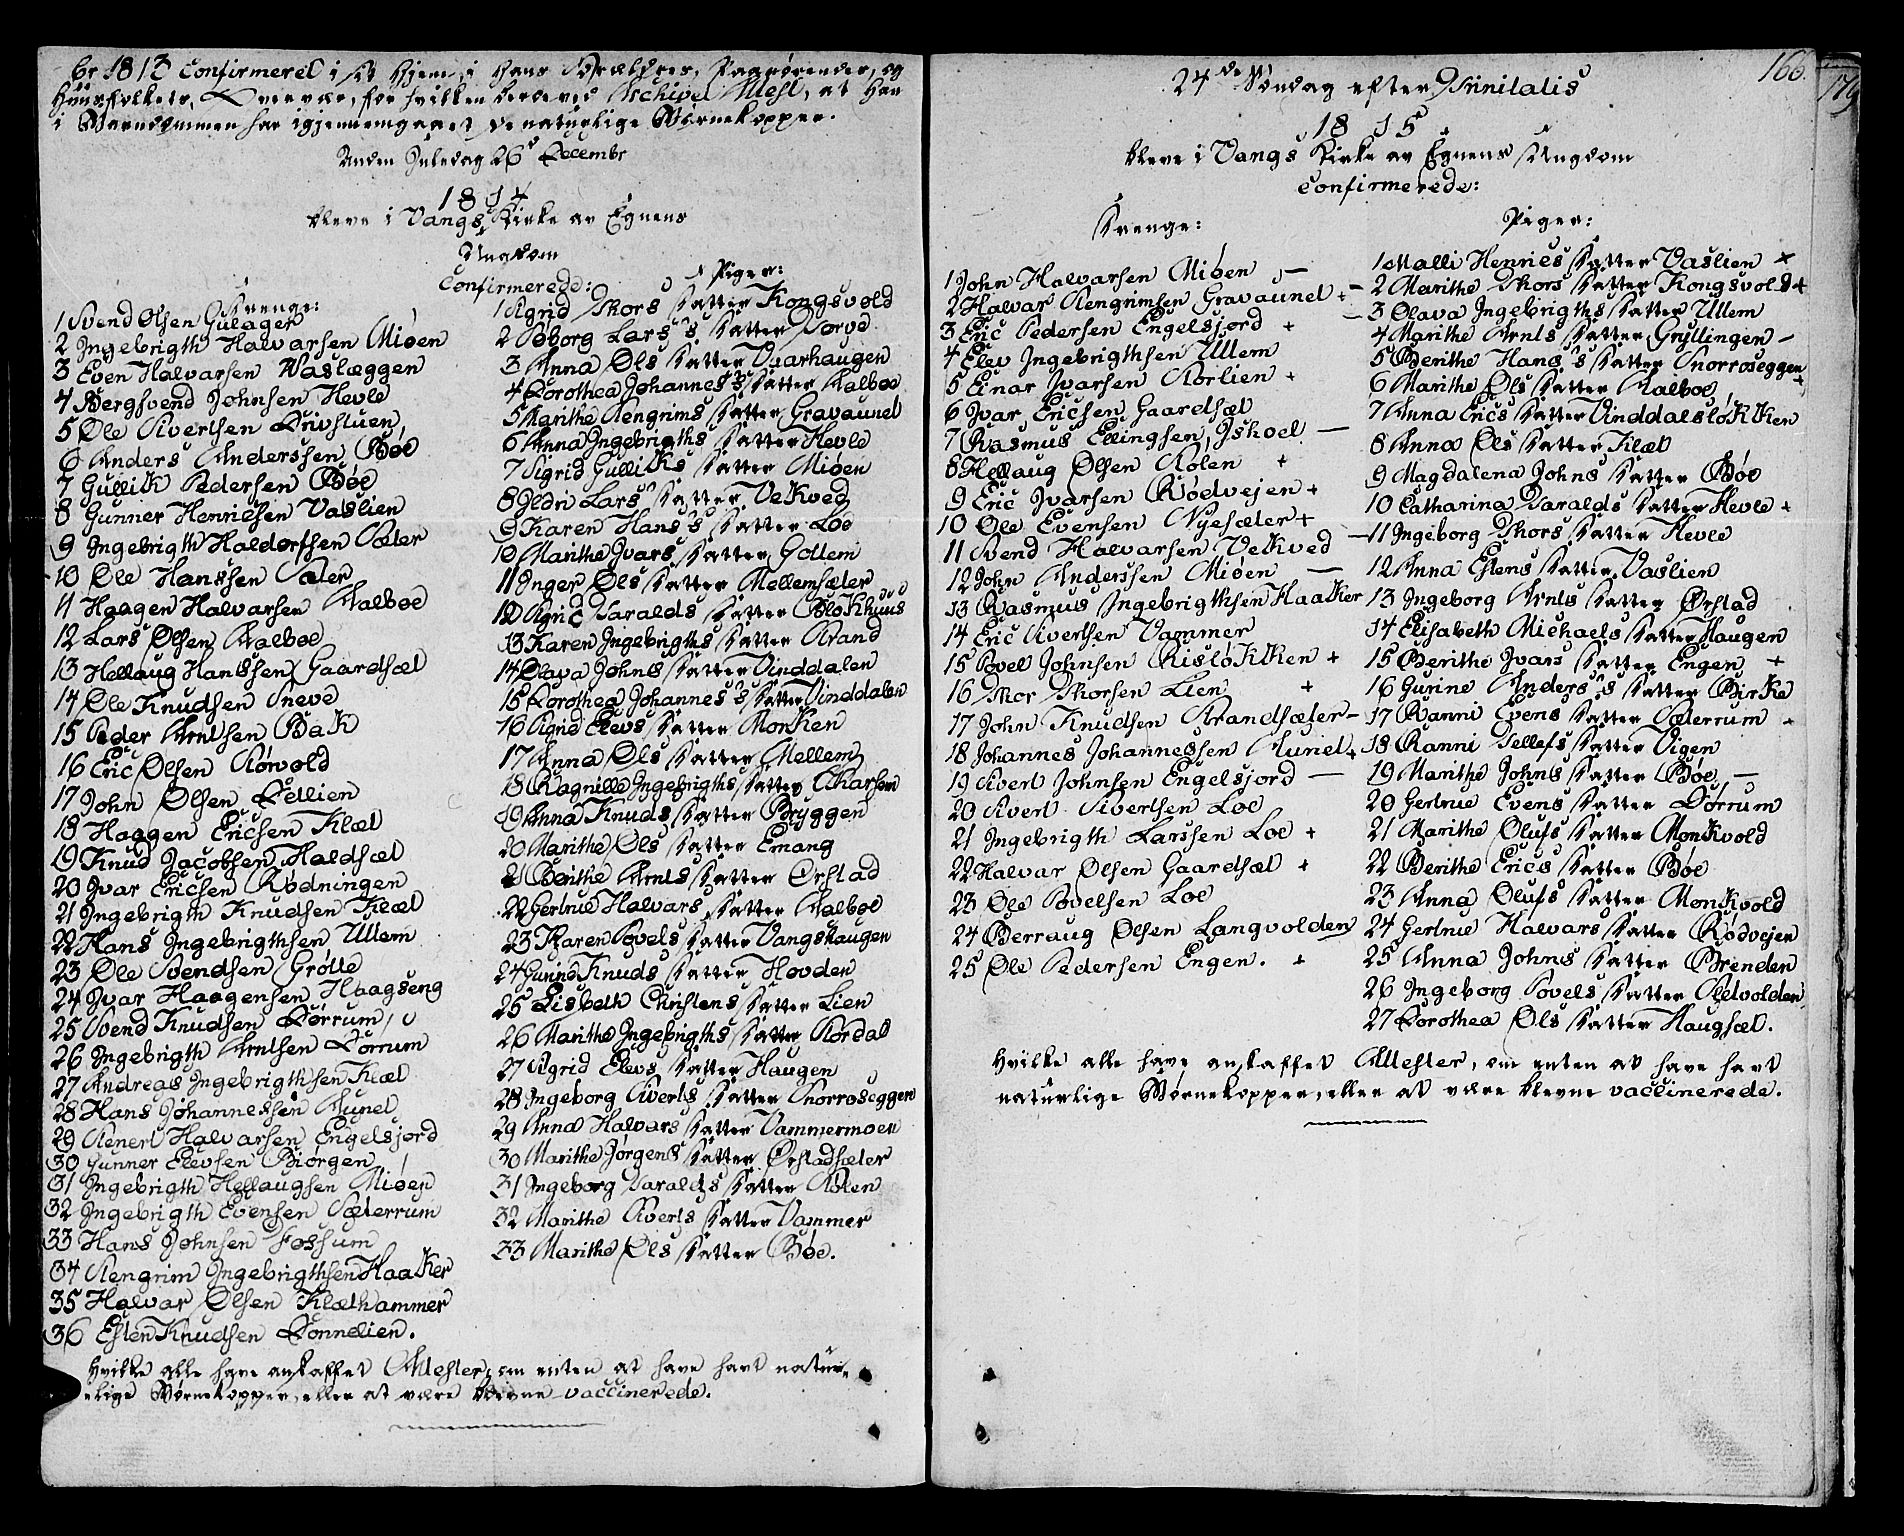 br 1813 Confirmeret i sit Hjem, i Hans Forældres, Paarørendes, og
Huusfolkets, Overvær, for hvilken beroe ved Archivet Attest, at Han
i Barndommen har igjennemgaaet de naturlige Børnekopper.
Anden Juledag 26d Decembr
1814
bleve i Vangs Kirke av Egnens
Ungdom
Confirmerede:
Drenge:
1 Svend Olsen Gulager
2 Ingebrigth Halvarsen Miøen
3 Even Halvarsen Vaslæggen
4 Bergsvend Johnsen Hevle
5 Ole Sivertsen Drivstuen
6 Anders Anderssen Bøe
7 Gullik Pedersen Bøe
8 Gunner Henricsen Vaslien
9 Ingebrigth Haldorssen Sæter
10 Ole Hanssen Sæter
11 Haagen Halvarsen Aalboe
12 Lars Olsen Aalboe
13 Hellaug Hanssen Gaardsæt
14 Ole Knudsen Sneve
15 Peder Arntsen Bak
16 Eric Olsen Rørvold
17 John Olsen Dettien
18 Haagen Ericsen Klæt
19 Knud Jacobsen Haldsæt
20 Ivar Ericsen Rødningen
21 Ingebrigth Knudsen Klæt
22 Hans Ingebrigthsen Ullem
23 Ole Svendsen Grøtte
24 Ivar Haagensen Haagseng
25 Svend Knudsen Dørrum
26 Ingebrigth Arntsen Dørrum
27 Andreas Ingebrigthsen Klæt
28 Hans Johannessen Aunet
29 Stenert Halvarsen Engelsjord
30 Gunner Elevsen Biørgen
31 Ingebrigth Hellaugsen Miøen
32 Ingebrigth Evensen Sæterrum
33 Hans Johnsen Fossum
34 Stengrim Ingebrigthsen Haaker
35 Halvar Olsen Klæthammer
36 Esten Knudsen Donnelien.
Hvilke alle have anskaffet Attester, om enten at have havt natur-
elige Børnekopper, eller at være blevne vaccinerede.
Piger:
1 Sigrid Thors Datter Kongsvold
2 Soborg Lars's Datter Torve
3 Anna Ols Datter Varhaugen
4 Dorothea Johannes's Datter Aalboe
5 Marithe Stengrims Datter Gravaunet
6 Anna Ingebrigths Datter Hevle
7 Sigrid Gulliks Datter Miøen
8 Ildri Lars's Datter Vekved
9 Karen Hans's Datter Loe
10 Marithe Ivars Datter Gottem
11 Inger Ols Datter Mellemsæter
12 Sigrid Taralds Datter Blokhuus
13 Karen Ingebrigths Datter Strand
14 Olava Johns Datter Vinddalen
15 Dorothea Johannes's Datter Vinddalen
16 Sigrid Elevs Datter Monken
17 Anna Ols Datter Mellem
18 Ragnille Ingebrigths Datter Aharsem
19 Anna Knuds Datter Bryggen
20 Marithe Ols Datter Emang
21 Berithe Arnts Datter Ørstad
22 Gertrue Halvars Datter Aalboe
23 Karen Povels Datter Vangshaugen
24 Gurine Knuds Datter Hovden
25 Lisbeth Christens Datter Lien
26 Marithe Ingebrigths Datter Stordal
27 Sigrid Elevs Datter Haugen
28 Ingeborg Siverts Datter Snorroseggen
29 Anna Halvars Datter Vammermoen
30 Marithe Jørgens Datter Ørstadsæter
31 Ingeborg Taralds Datter Stølen
32 Marithe Siverts Datter Vammer
33 Marithe Ols Datter Bøe.
166.
179
24de Søndag efter Trinitatis
1815
bleve i Vangs Kirke av Egnens Ungdom
Confirmerede:
Drenge:
1 John Halvarsen Miøen —
2 Halvar Stengrimsen Gravaunet +
3 Eric Pedersen Engelsjord +
4 Elev Ingebrigthsen Ullem
5 Einar Ivarsen Storlien +
6 Ivar Ericsen Gaardsæt
7 Rasmus Ellingsen Ishoel —
8 Hellaug Olsen Stølen +
9 Eric Ivarsen Rødvejen +
10 Ole Evensen Nyesæter +
11 Svend Halvarsen Vekved —
12 John Anderssen Miøen —
13 Rasmus Ingebrigthsen Haaker
14 Eric Sivertsen Vammer
15 Povel Johnsen Risløkken +
16 Thor Thorsen Lien +
17 John Knudsen Strandsæter —
18 Johannes Johannessen Aunet +
19 Sivert Johnsen Engelsjord —
20 Sivert Sivertsen Loe
21 Ingebrigth Larssen Loe +
22 Halvar Olsen Gaardsæt +
23 Ole Povelsen Loe
24 Berraug Olsen Langvolden
25 Ole Pedersen Engen. +
Piger:
1 Malli Henrics Datter Vaslien +
2 Marithe Thors Datter Kongsvold +
3 Olava Ingebrigths Datter Ullem
4 Marithe Arnts Datter Gryttingen —
5 Berithe Hans's Datter Snorroseggen +
6 Marithe Ols Datter Aalboe
7 Anna Erics Datter Vinddalsløkken
8 Anna Ols Datter Klæt
9 Magdalena Johns Datter Bøe
10 Catharina Taralds Datter Hevle +
11 Ingeborg Thors Datter Hevle
12 Anna Estens Datter Vaslien
13 Ingeborg Arnts Datter Ørstad
14 Elisabeth Michaels Datter Haugen
15 Berithe Ivars Datter Engen +
16 Gurine Anders's Datter Birke
17 Ranni Evens Datter Sæterrum +
18 Ranni Tellefs Datter Vigen
19 Marithe Johns Datter Bøe —
20 Gertrue Evens Datter Dørrum
21 Marithe Olufs Datter Monkvold
22 Berithe Erics Datter Bøe
23 Anna Olufs Datter Monkvold
24 Gertrue Halvars Datter Rødvejen
25 Anna Johns Datter Brenden
26 Ingeborg Povels Datter Sletvolden
27 Dorothea Ols Datter Haugsæt.
Hvilke alle have anskaffet Attester, om enten at have havt
naturlige Børnekopper, eller at være blevne vaccinerede.